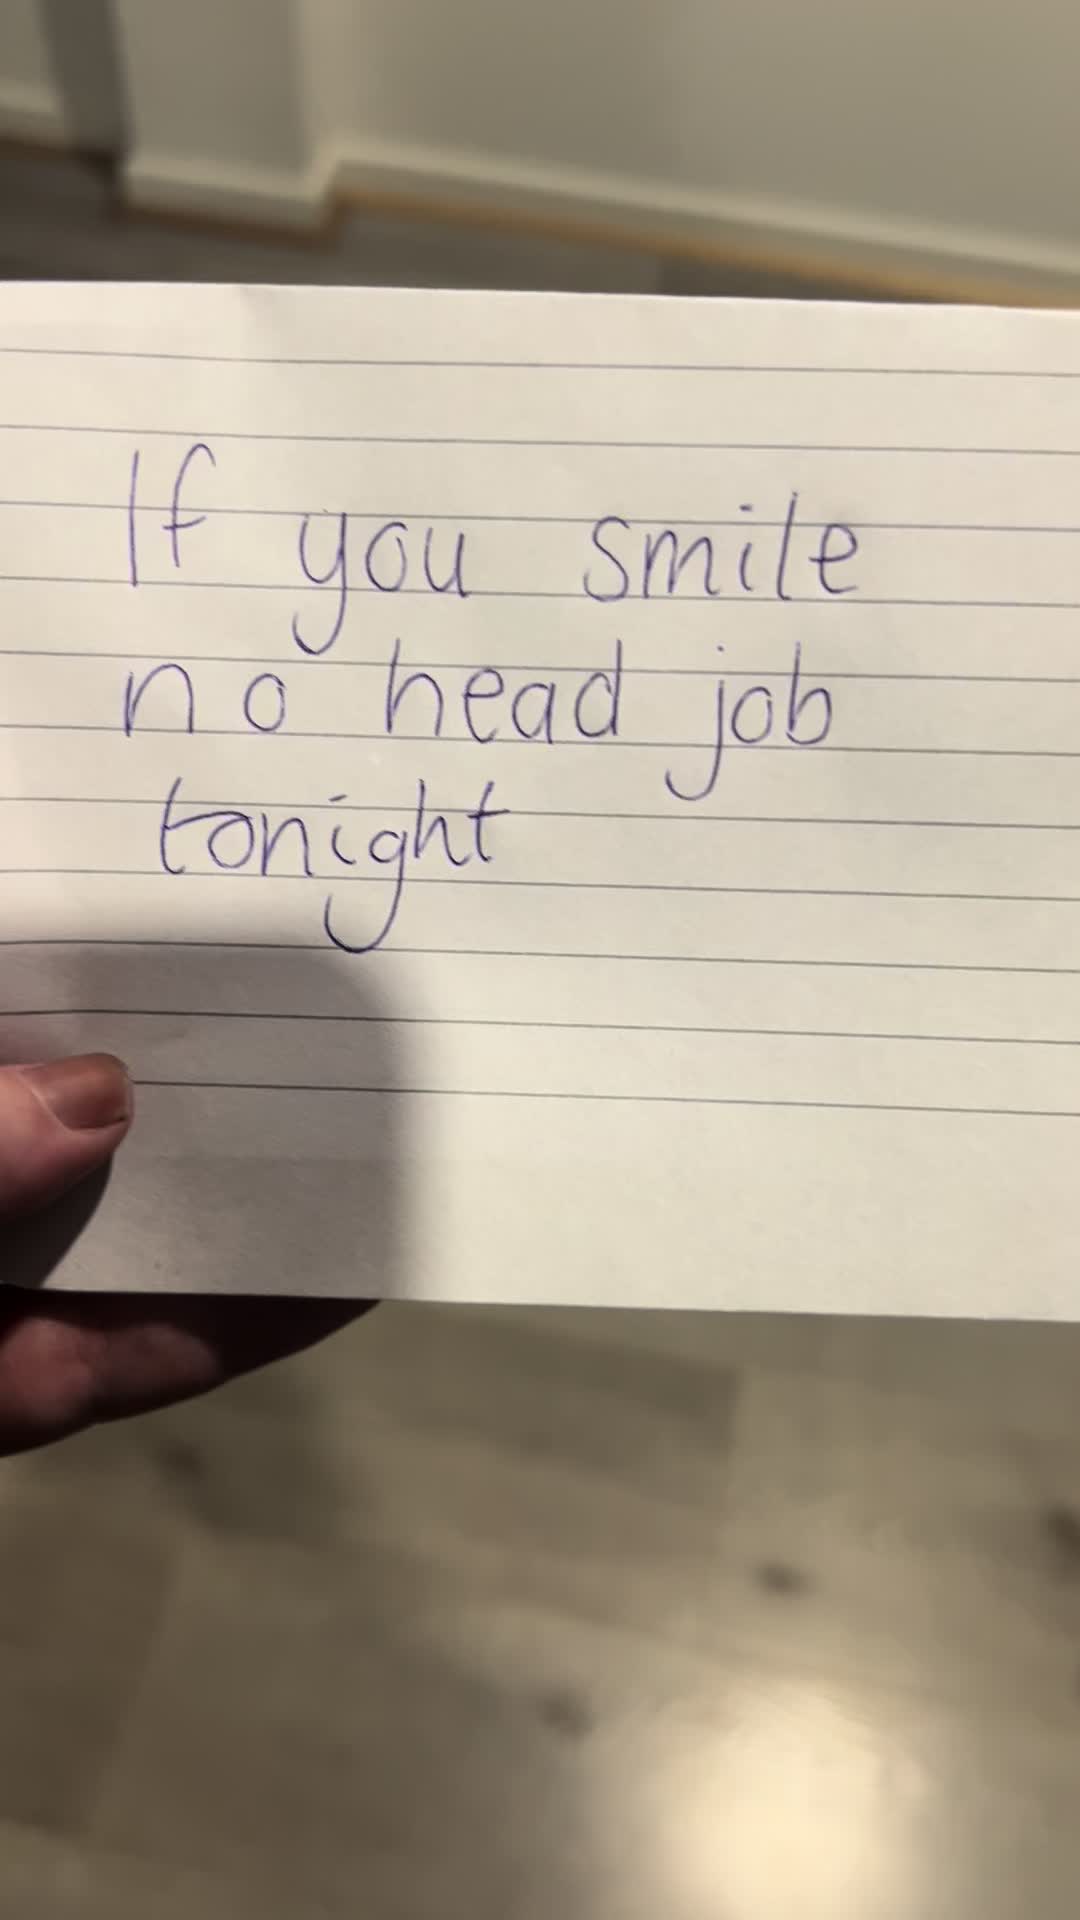 If you smile
no head job
tonight